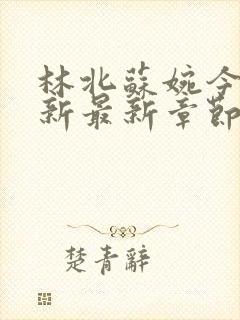 林北蘇婉今
新最新章節
楚青辭